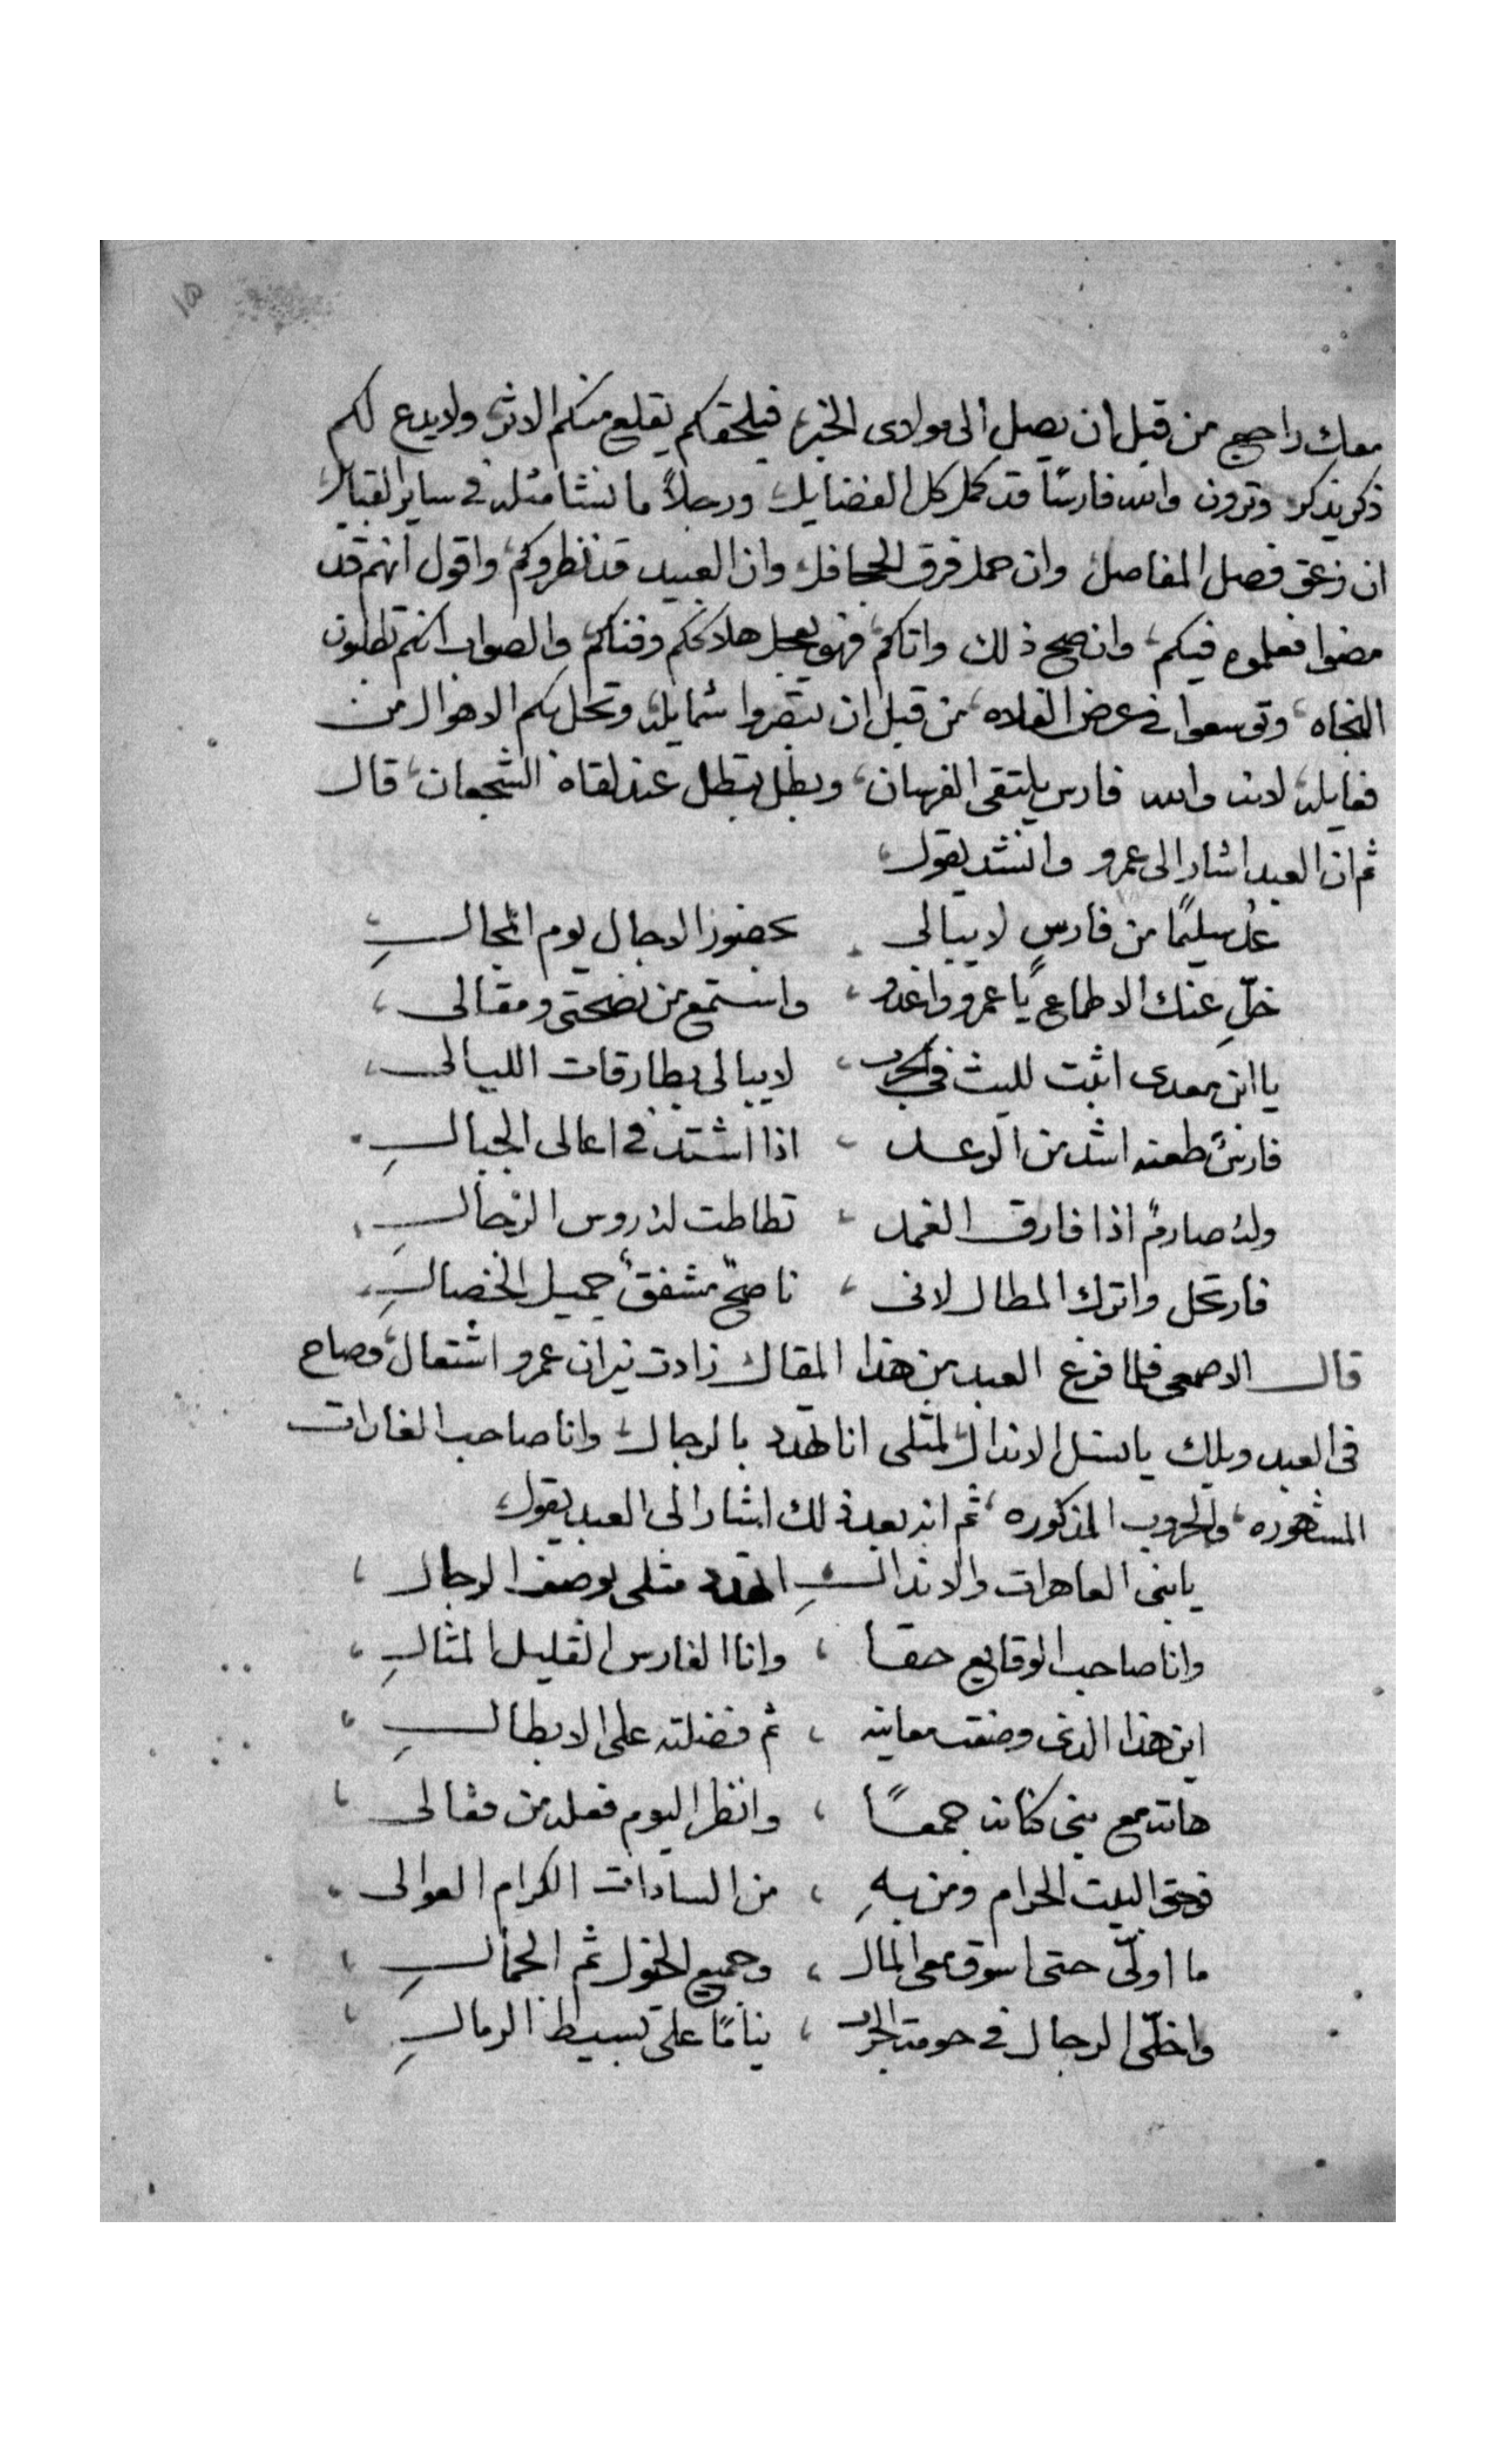 معك راجع من قبل ان يصل الى مولاى الخبر فيلحقكم يقلع منكم الاثر ولا يدع لكم
ذكر يذكر وترون والله فارسًا قد كمل كل الفضايل ورجلاً ما نشا مثله فى ساير القبايل
ان زعق فصل المفاصل وان حمل فرق الجحافل وان العبيد قد نظروكم واقول انهم قد
مضوا فعلموه فيكم وان صح ذلك واتاكم فهو يعجل هلاككم وفناكم والصواب انكم تطلبون
النجاه وتوسعوا فى عرض الفلاه من قبل ان تبصروا شمايله وتحل بكم الاهوال من
فعايله لانه والله فارس يلتقى الفرسان وبطل يبطل عند لقاه الشجعان قال
ثم ان العبد اشار الى عمرو وانشد يقول
عد سليمًا من فارسٍ لا يبالى بحضور الاجال يوم المجال
خلِّ عنك الاطماع يا عمرو واغدو واستمع من نصحتى ومقالى
يا ابن معدى اثبت لليث فى الحرب لا يبالى بطارقات الليالى
فارسٌ طعنه اشد من الرعد اذا اشتد فى اعالى الجبالِ
وله صارمٌ اذا فارق الغمد تطاطت له روس الرجالِ
فارتحل واترك المطال لانى ناصحٌ مشفقٌ جميل الخصالِ
قال الاصمعى فلما فرغ العبد من هذا المقال زادت نيران عمرو اشتعال وصاح
فى العبد ويلك يا نسل الاندال لمثلى انا تهدد بالرجال وانا صاحب الغارات
المشهوره والحروب المذكوره ثم انه بعد ذلك اشار الى العبد يقول
يا بنى العاهرات والاندالِ اتهدد مثلى بوصف الرجال
وانا صاحب الوقايع حقا وانا الفارس القليل المثالِ
اين هذا الذى وصفت معانيه ثم فضلته على الابطالِ
هاته مع بنى كنانه جمعًا وانظر اليوم فعله من فعالى
فوحق البيت الحرام ومن بهِ من السادات الكرام العوالى
ما اولّى حتى اسوق معى المال وجميع الخيول ثم الجمالِ
واخلّى الرجال فى حومة الحرب نيامًا على بسيط الرمالِ